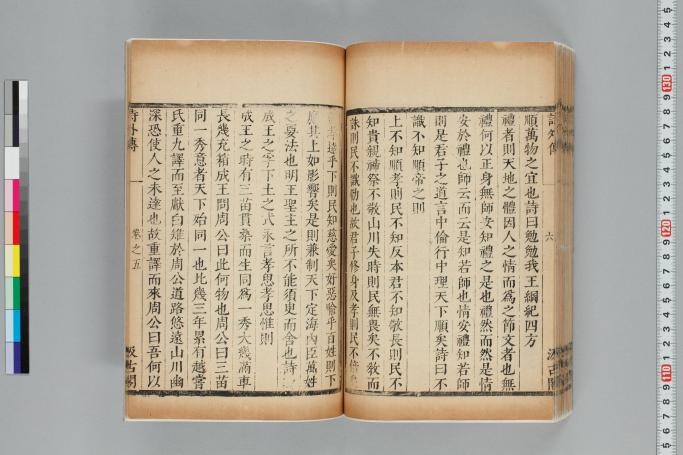 順萬物之宜也詩曰勉勉我王綱紀四方
禮者則天地之體因人之情而爲之節文者也無
禮何以正身無師安知禮之是也禮然而然是情
安於禮也師云而云是知若師也情安禮知若師
則是君子之道言中倫行中理天下順矣詩曰不
識不知順帝之則
上不知順孝則民不知反本君不知敬長則民不
知貴親禘祭不敬山川失時則民無畏矣不敎而
誅則民不識勸也故君子修身及孝則民不倍矣
敬孝達乎下則民知慈愛矣好惡喻乎百姓則下
應其上如影響矣是則兼制天下定海內臣萬姓
之要法也明王聖主之所不能須臾而舍也詩曰
成王之孚下土之式永言孝思孝思惟則
成王之時有三苗貫桑而生同爲一秀大幾滿車
長幾充箱成王問周公曰此何物也周公曰三苗
同一秀意者天下殆同一也比幾三年果有越裳
氏重九譯而至獻白雉於周公道路悠遠山川幽
深恐使人之未達也故重譯而來周公曰吾何以
詩外傳
卷之五
六
汲古閣